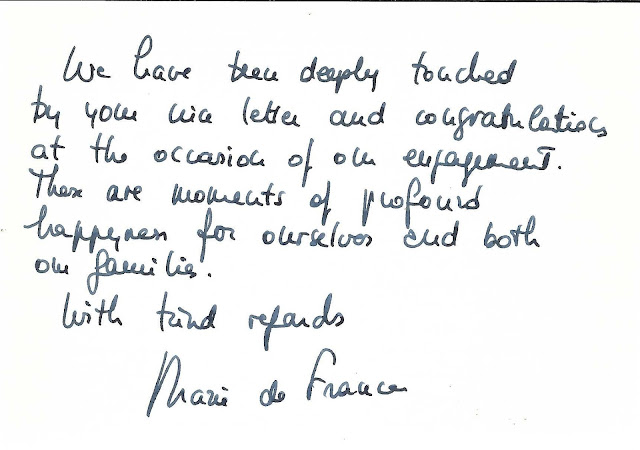 We have been deeply touched
by your nice letter and congratulations
at the occasion of our engagement.
These are moments of profound
happyness for ourselves and both
our families.
With kind regards
Marie de France